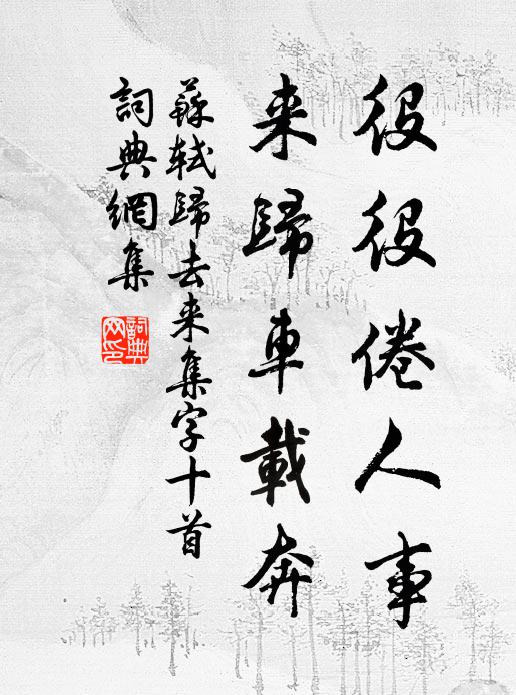 役役倦人事
来歸車載奔
蘇軾歸去来集字十首
詞典網集
詞典网印